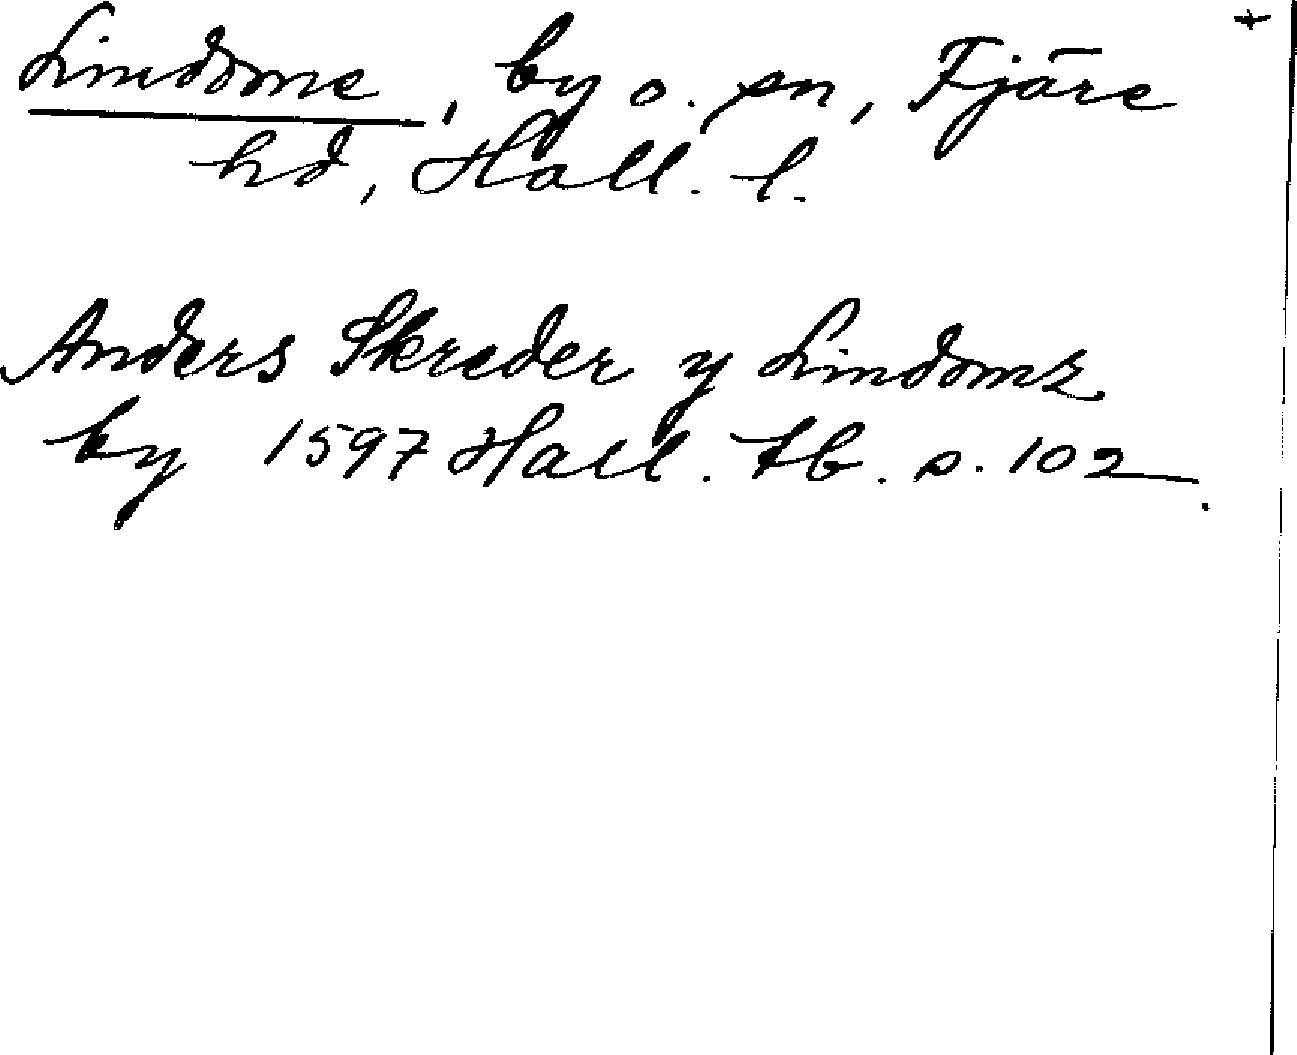 Lindome, by o. sn, Fjäre
hd, Hall. l.
Anders Skreder y Lindomz
by 1597 Hall. tb. s. 102.